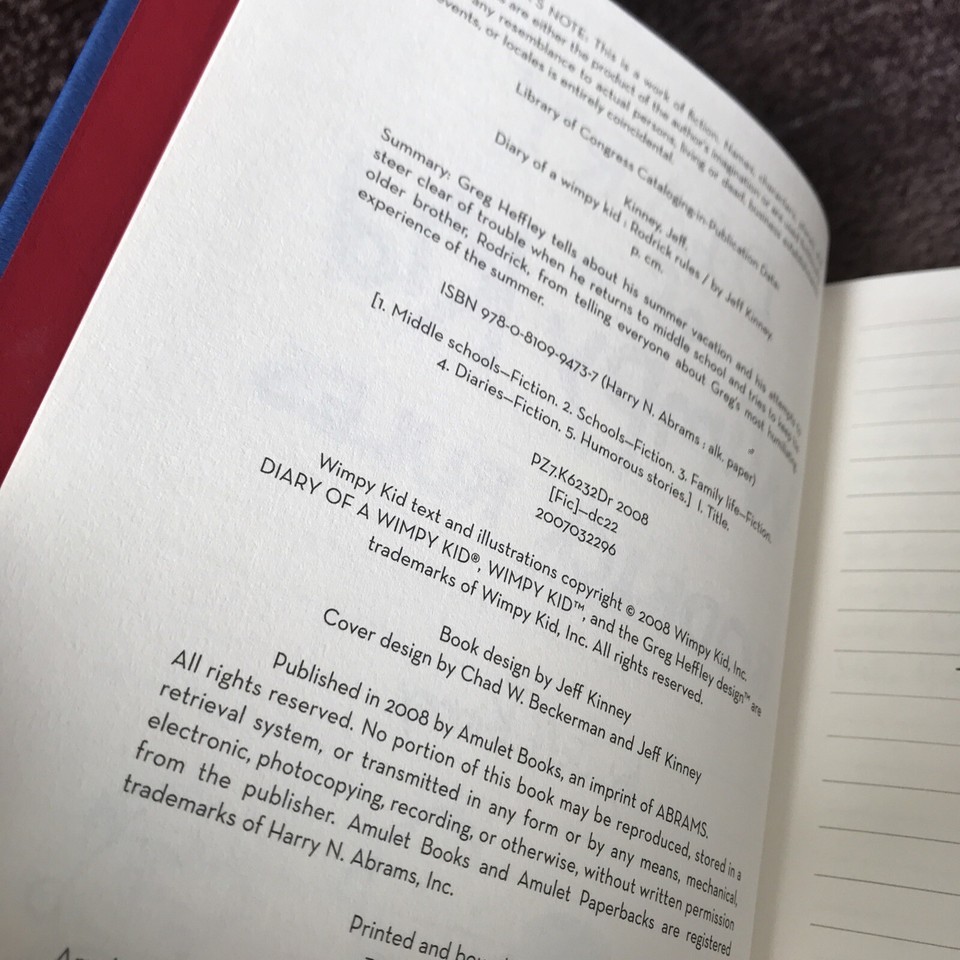 'S NOTE: This is a work of fiction. Names, characters,
are either the product of the author's imagination or are used
any resemblance to actual persons, living or dead, business
events, or locales is entirely coincidental.
Library of Congress Cataloging-in-Publication Data:
Kinney, Jeff.
Diary of a wimpy kid : Rodrick rules / by Jeff Kinney
p. cm.
Summary: Greg Heffley tells about his summer vacation and his attempts to
steer clear of trouble when he returns to middle school and tries to keep his
older brother, Rodrick, from telling everyone about Greg's most humiliating
experience of the summer.
ISBN 978-0-8109-9473-7 (Harry N. Abrams : alk. paper)
[1. Middle schools—Fiction. 2. Schools—Fiction. 3. Family life—Fiction.
4. Diaries—Fiction. 5. Humorous stories.] I. Title.
PZ7.K6232Dr 2008
[Fic]—dc22
2007032296
Wimpy Kid text and illustrations copyright © 2008 Wimpy Kid, Inc.
DIARY OF A WIMPY KID®, WIMPY KID™, and the Greg Heffley design™ are
trademarks of Wimpy Kid, Inc. All rights reserved.
Book design by Jeff Kinney
Cover design by Chad W. Beckerman and Jeff Kinney
Published in 2008 by Amulet Books, an imprint of ABRAMS.
All rights reserved. No portion of this book may be reproduced, stored in a
retrieval system, or transmitted in any form or by any means, mechanical,
electronic, photocopying, recording, or otherwise, without written permission
from the publisher. Amulet Books and Amulet Paperbacks are registered
trademarks of Harry N. Abrams, Inc.
Printed and